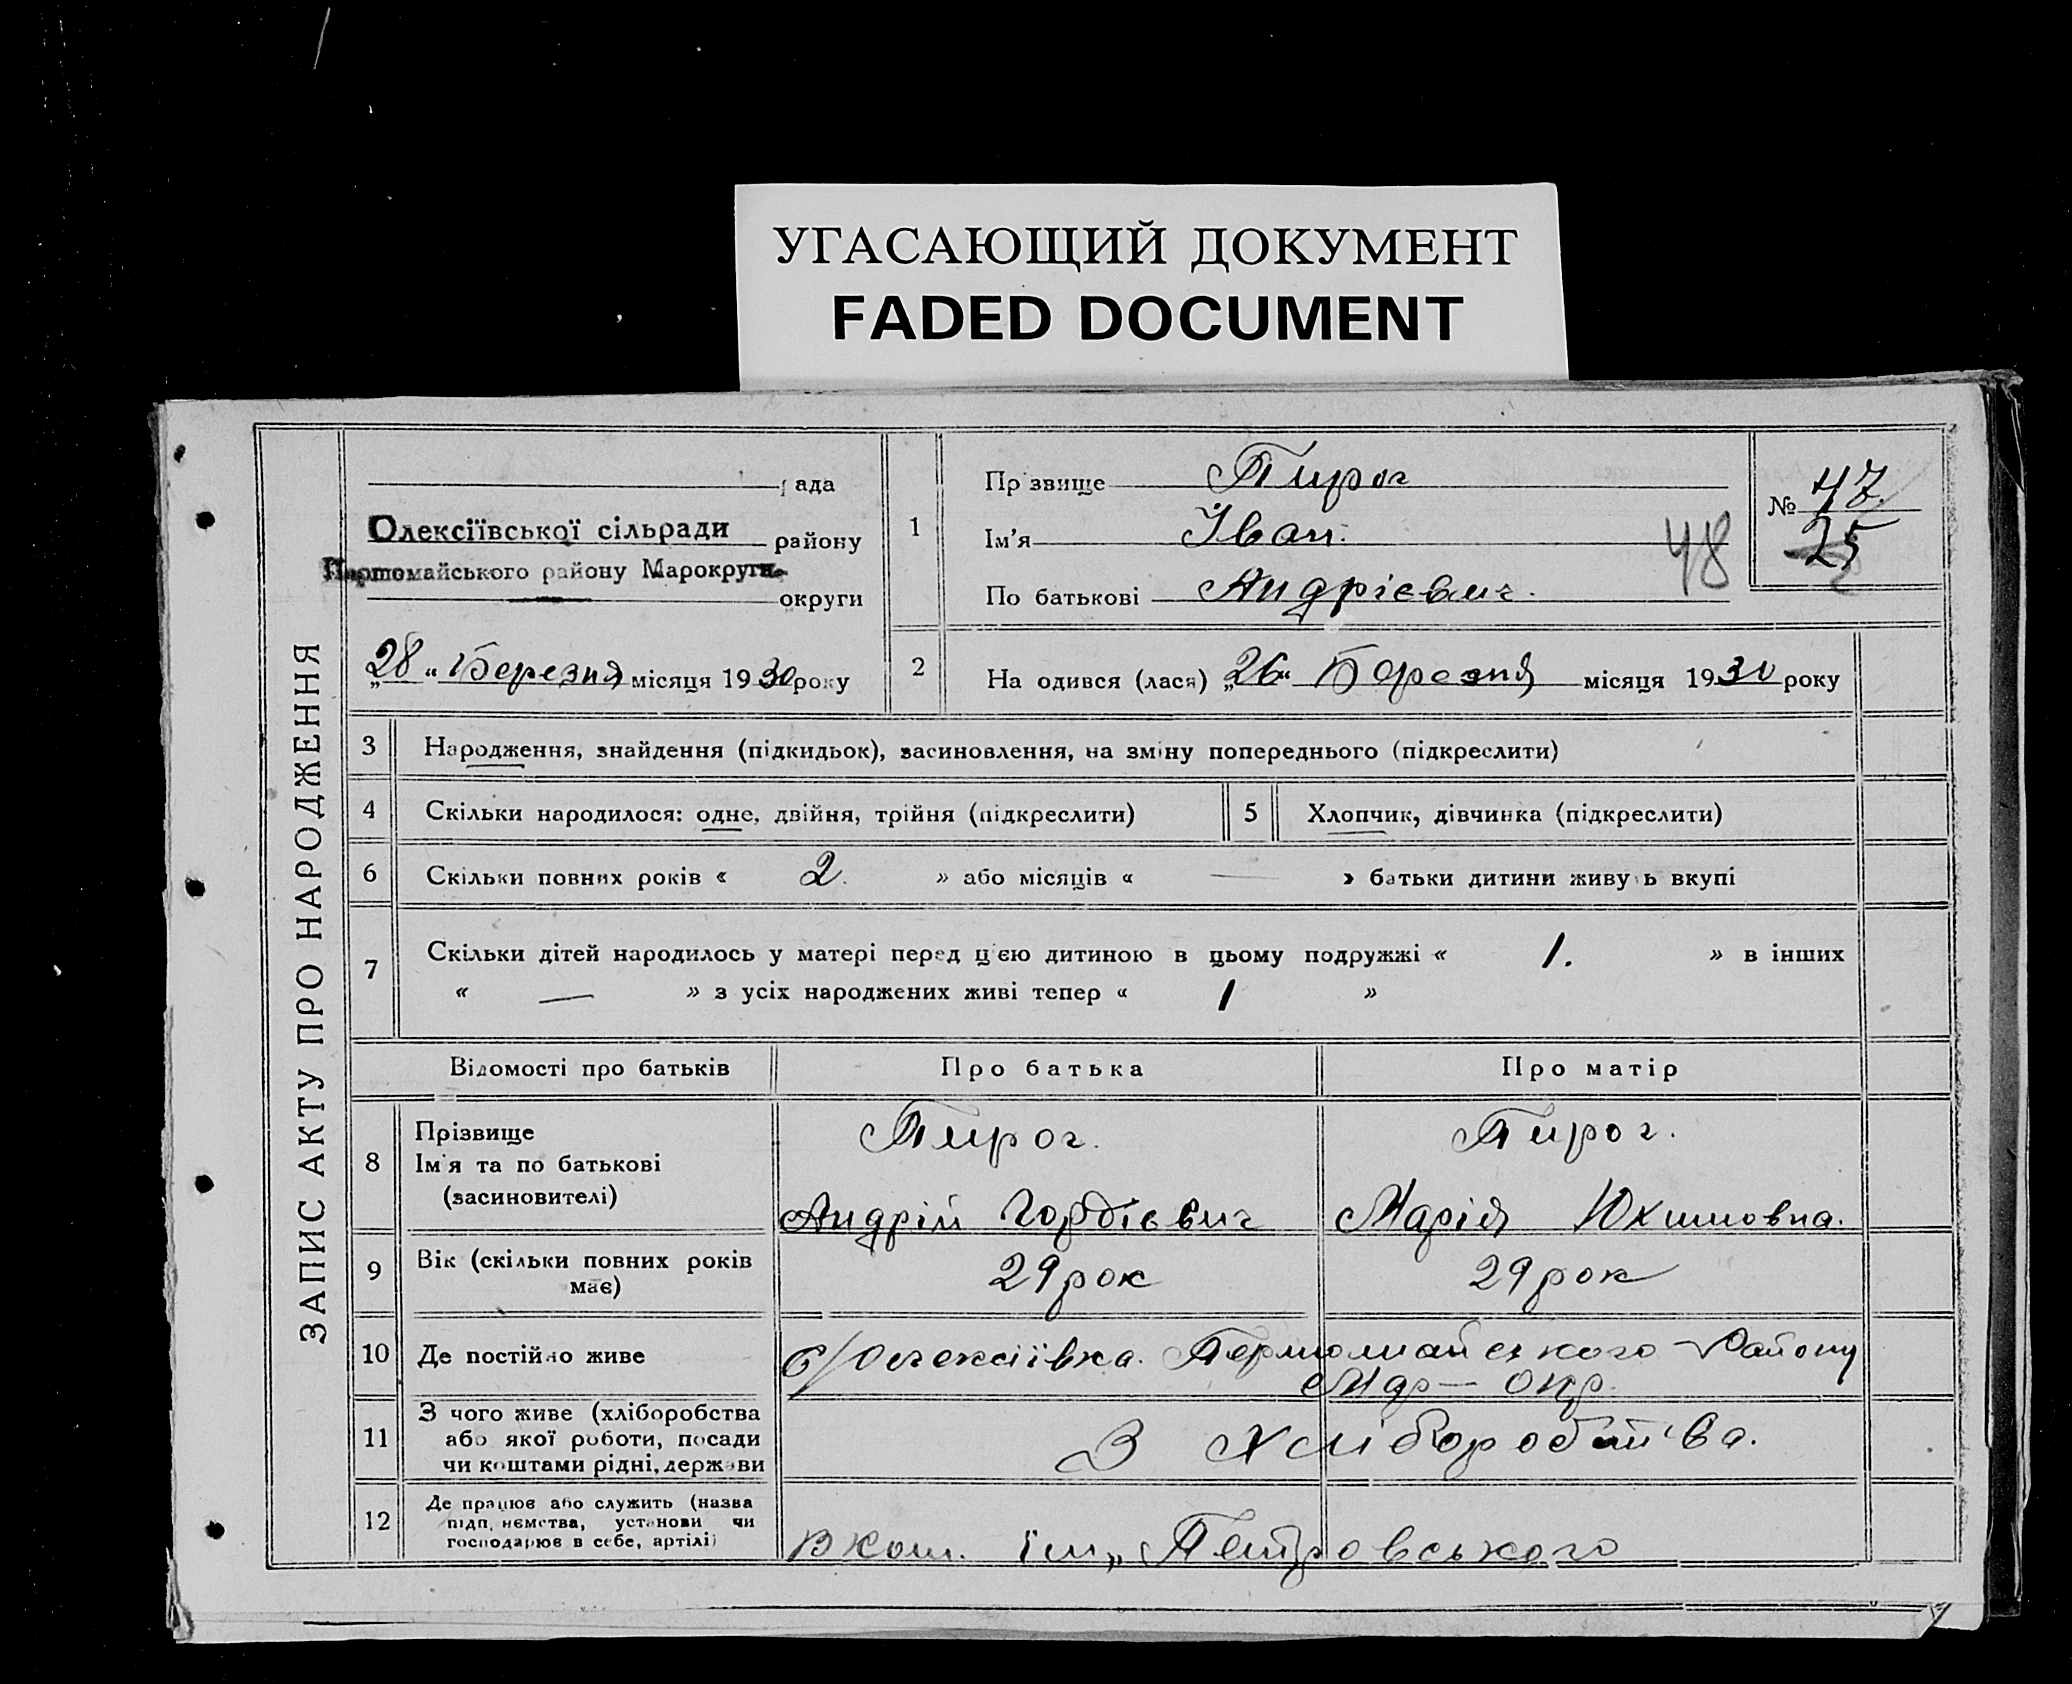 УГАСАЮЩИЙ ДОКУМЕНТ
FADED DOCUMENT
ЗАПИС АКТУ ПРО НАРОДЖЕННЯ
рада
Олексіївської сільради району
Першомайського району Марокруги
округи
„28“ Березня місяця 1930 року
1
Прізвище Пирог
Ім'я Іван.
По батькові Андрієвич.
48
№ 47
25
2
Народився (лася) „26“ Березня місяця 1930 року
3 Народження, знайдення (підкидьок), засиновлення, на зміну попереднього (підкреслити)
4 Скільки народилося: одне, двійня, трійня (підкреслити)
5 Хлопчик, дівчинка (підкреслити)
6 Скільки повних років « 2. » або місяців « — » батьки дитини живуть вкупі
7 Скільки дітей народилось у матері перед цією дитиною в цьому подружжі « 1. » в інших
« — » з усіх народжених живі тепер « 1 »
Відомості про батьків Про батька Про матір
8 Прізвище
Ім'я та по батькові
(засиновителі)
Пирог. Пирог.
Андрій Гордієвич Марія Юхимовна.
9 Вік (скільки повних років
має)
29 рок 29 рок
10 Де постійно живе
С/Олексіївка. Першомайського Району
Мар— окр.
11 З чого живе (хліборобства
або якої роботи, посади
чи коштами рідні, держави
З Хліборобства.
12 Де працює або служить (назва
підприємства, установи чи
господарює в себе, артілі)
В ком. їм„ Петровського